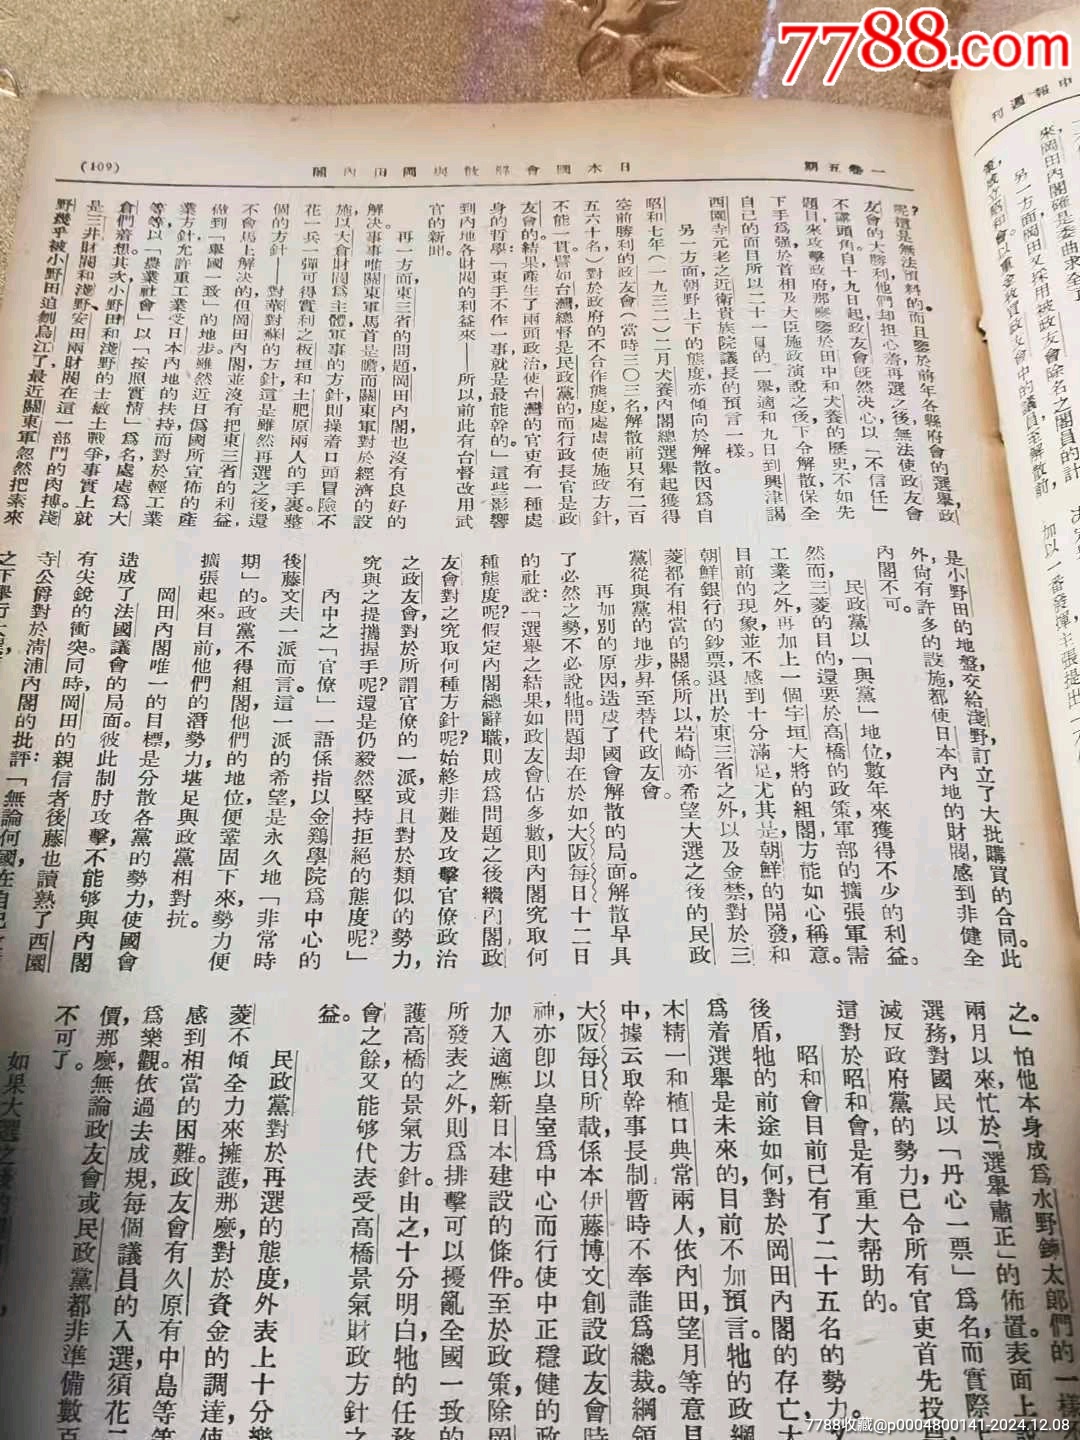 7788.com
中報週刊
一卷五期
日本國會解散與岡田內閣
(109)
呢?這是無法預料的。而且鑒於前年各縣府會的選舉,政
友會的大勝利,他們却担心着再選之後,無法使政友會
不露頭角。自十九日起,政友會既然决心以「不信任」
題目來攻擊政府,那麽鑒於田中和犬養的歷史,不如先
下手爲强,於首相及大臣施政演說之後,下令解散,保全
自己的面目。所以二十一日的一舉,適和九日到興津謁
西園寺元老之近衛貴族院議長的預言一樣。
另一方面,朝野上下的態度,亦傾向於解散,因爲自
昭和七年(一九三二)二月犬養內閣總選舉起獲得
空前勝利的政友會(當時三〇三名,解散前只有二百
五六十名),對於政府的不合作態度,處處使施政方針,
不能一貫。譬如台灣總督是民政黨的,而行政長官是政
友會的結果,產生了兩頭政治,使台灣的官吏有一種處
身的哲學:「束手不作一事,就是最能幹的。」這些影響
到內地各財閥的利益來 所以前此有台督改用武
官的新
再一方面,東三省的問題,岡田內閣也沒有良好的
解决。事事唯關東軍馬首是瞻,而關東軍對於經濟的設
施,以大倉財閥爲主體,軍事的方針,則操着口頭冒險不
花一兵一彈可得實利之板垣和土肥原兩人的手裏。整
個的方針——對華對蘇的方針,這是雖然再選之後,還
不會馬上解决的,但岡田內閣並沒有把東三省的利益
做到「舉國一致」的地步。雖然近日僞國所宣佈的產
業方針,允許重工業受日本內地的扶持,而對於輕工業
等等,以「農業社會」以「按照實情」爲名,處處爲大
倉們着想。其次,小野田和淺野的士敏土戰爭,事實上就
是三井財閥和淺野,安田兩財閥在這一部門的肉搏,淺
野幾乎被小野田追刎烏江了。最近關東軍忽然把素來
是小野田的地盤交給淺野,訂立了大批購買的合同。此
外,尙有許多的設施,都使日本內地的財閥,感到非健全
內閣不可。
民政黨以「與黨」地位,數年來獲得不少的利益。
然而三菱的目的,還要於高橋的政策,軍部的擴張軍需
工業之外,再加上一個宇垣大將的組閣,方能如心稱意。
目前的現象,並不感到十分滿足,尤其是朝鮮的開發和
朝鮮銀行的鈔票退出於東三省之外,以及金禁,對於三
菱都有相當的關係。所以岩崎亦希望大選之後的民政
黨從與黨的地步,昇至替代政友會。
再加別的原因,造成了國會解散的局面。解散早具
了必然之勢,不必說牠。問題却在於如大阪每日十二日
的社說:「選舉之結果,如政友會佔多數,則內閣究取何
種態度呢?假定內閣總辭職,則成爲問題之後繼內閣,政
友會對之究取何種方針呢?始終非難及攻擊官僚政治
之政友會,對於所謂官僚的一派,或且對於類似的勢力,
究與之提攜握手呢?還是仍毅然堅持拒絕的態度呢?」
內中之「官僚」一語,係指以金鷄學院爲中心的
後藤文夫一派而言。這一派的希望,是永久地「非常時
期」的,政黨不得組閣,他們的地位便鞏固下來,勢力便
擴張起來。目前他們的潛勢力,堪足與政黨相對抗。
岡田內閣唯一的目標,是分散各黨的勢力,使國會
造成了法國議會的局面。彼此制肘攻擊,不能够與內閣
有尖銳的衝突。同時岡田的親信者後藤也讀熟了西園
寺公爵對於淸浦內閣的批評:「無論何國,在自己
之。」怕他本身成爲水野鍊太郎們的一樣
兩月以來,忙於「選舉肅正」的佈置。表面上
選務,對國民以「丹心一票」爲名,而實際上
滅反政府黨的勢力,已令所有官吏首先投
這對於昭和會,是有重大帮助的。
昭和會目前已有了二十五名的勢力
後盾。牠的前途如何,對於岡田內閣的存亡大
爲着選舉是未來的,目前不加預言。牠的政綱
木精一和植口典常兩人,依內田,望月等意見
中,據云取幹事長制,暫時不奉誰爲總裁。綱領
大阪每日所載,係本伊藤博文創設政友會時
神,亦卽以皇室爲中心而行使中正穩健的政
加入適應新日本建設的條件。至於政策,除岡
所發表之外,則爲排擊可以擾亂全國一致的
護高橋的景氣方針。由之十分明白,牠的任務
會之餘,又能够代表受高橋景氣財政方針之
益。
民政黨對於再選的態度,外表上十分樂
菱不傾全力來擁護,那麽對於資金的調達,使
感到相當的困難。政友會有久原,有中島等等
爲樂觀。依過去成規,每個議員的入選,須花二
價,那麽無論政友會或民政黨,都非準備數百
不可了。
如果大選之後的
7788收藏@p0004800141-2024.12.08